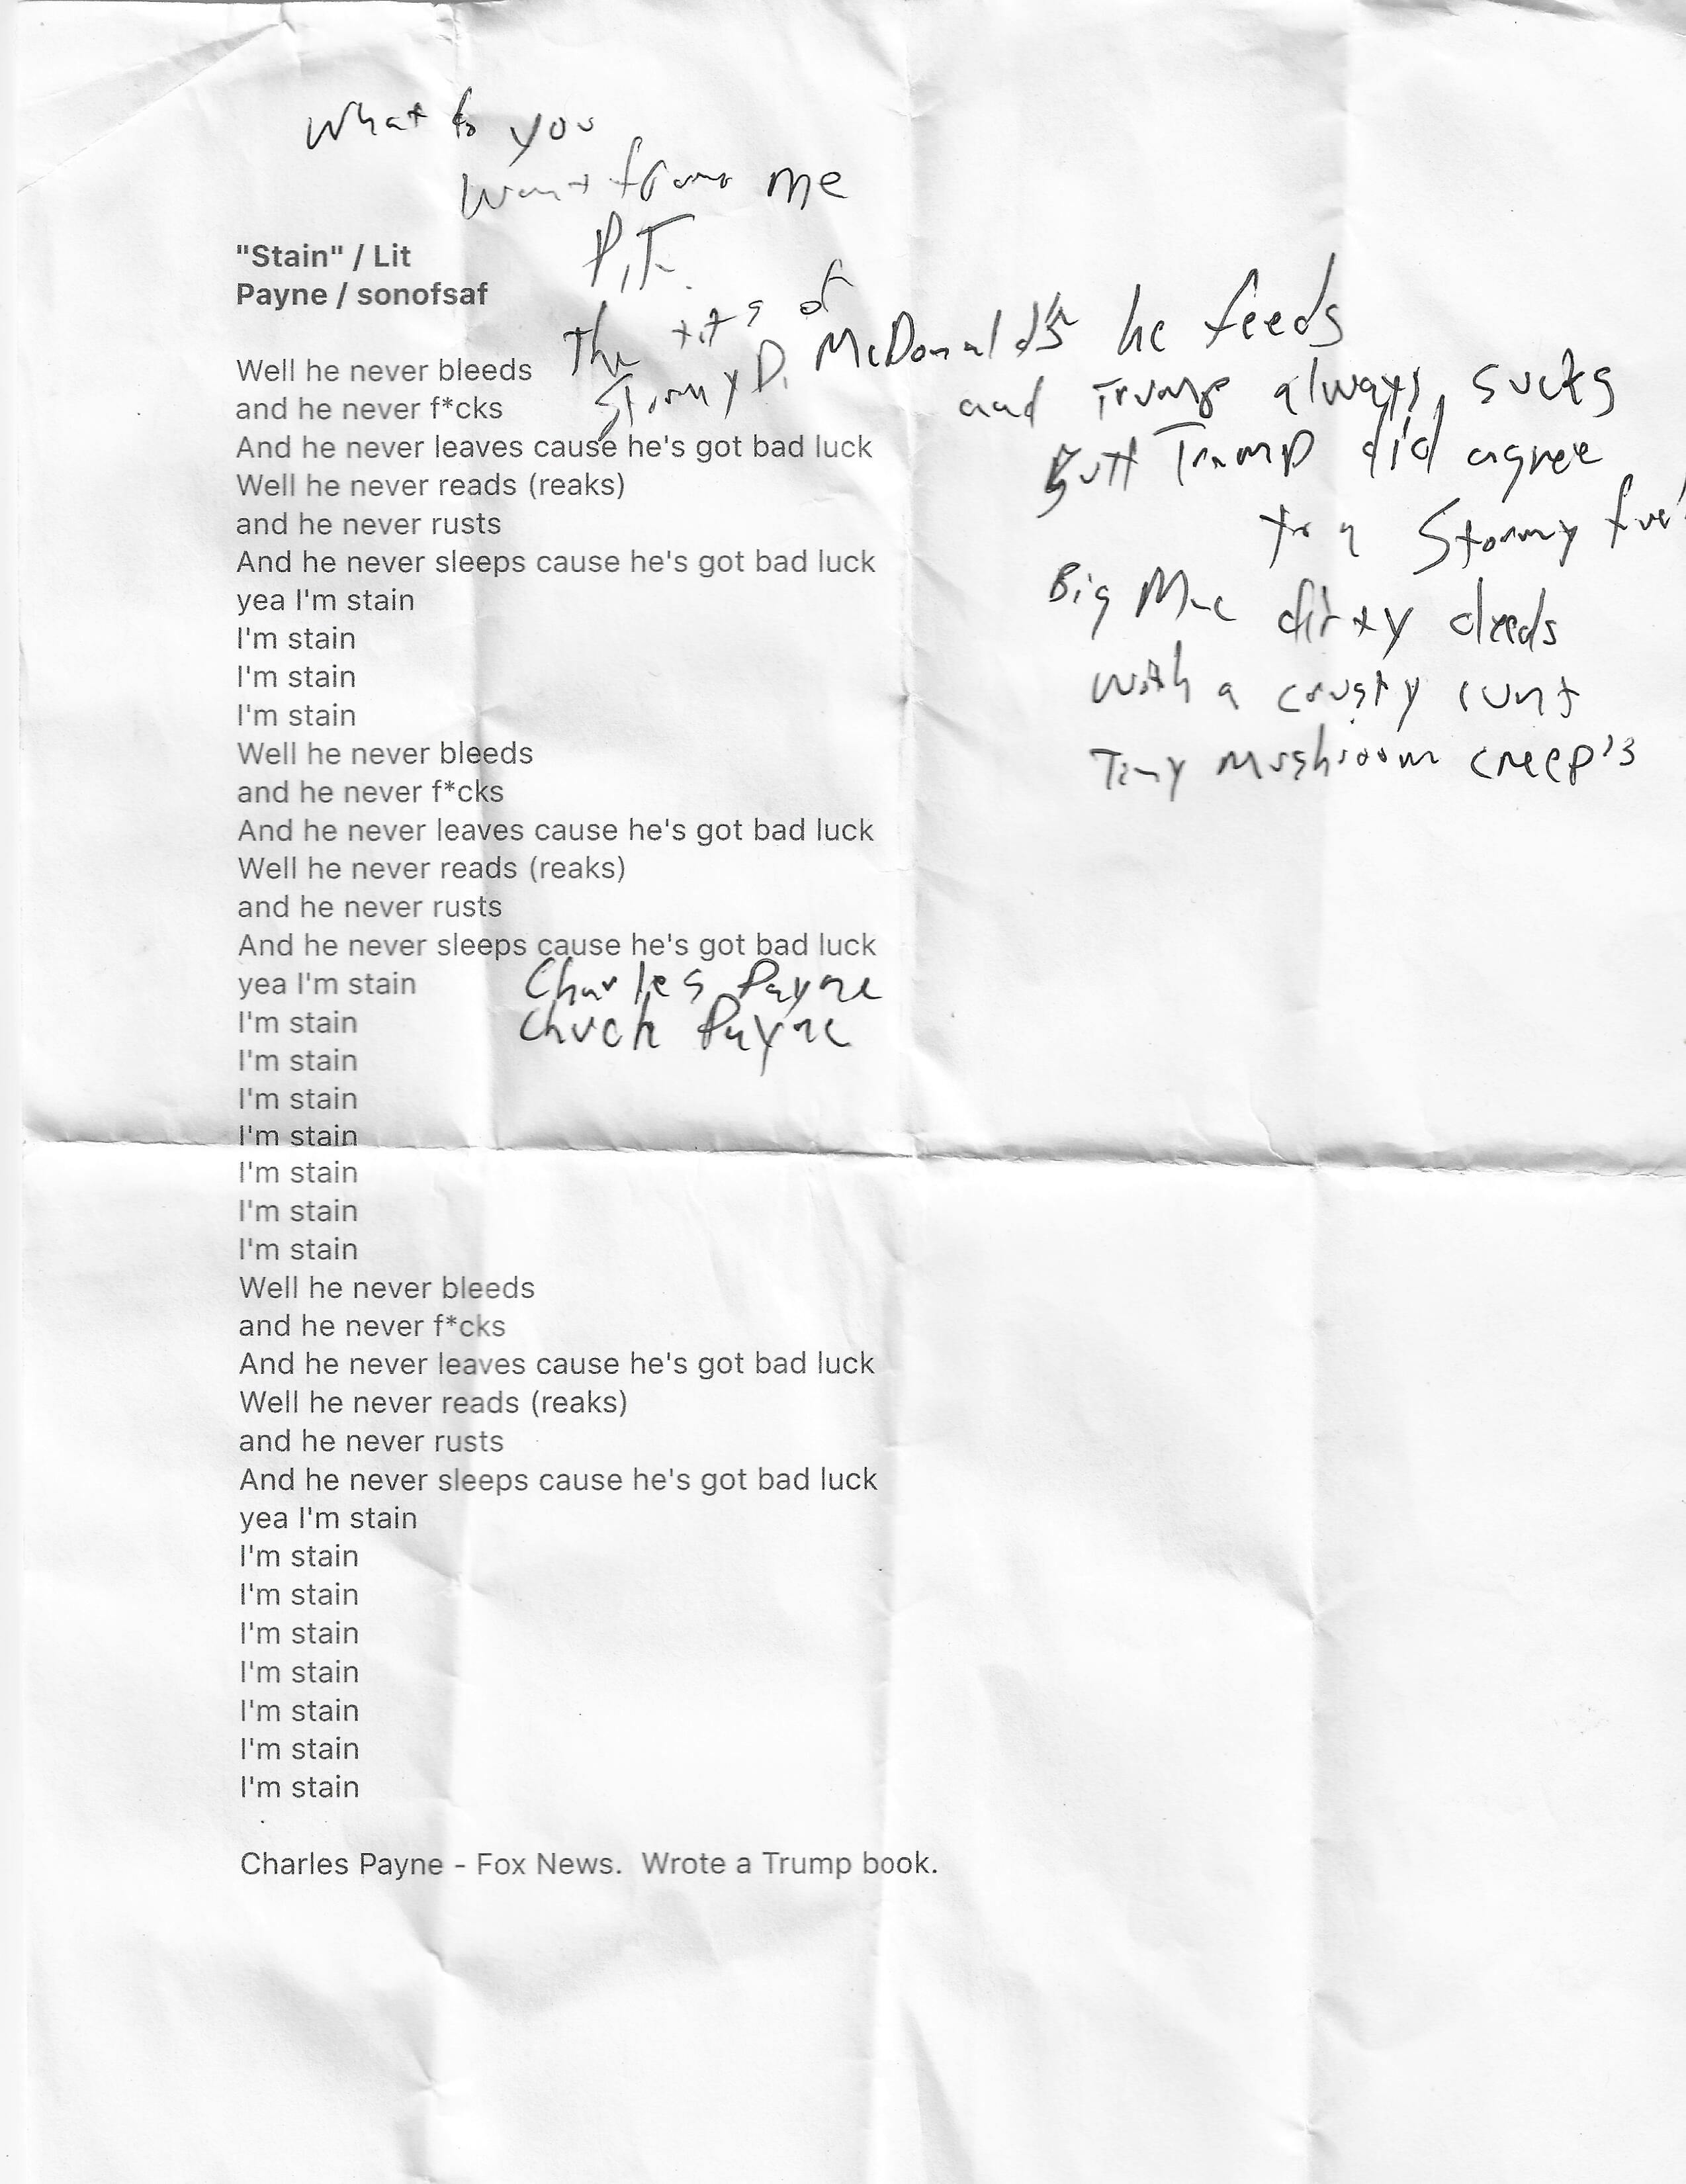 What do you
want from me
P.T.
"Stain" / Lit
Payne / sonofsaf
The tits of
Stormy D. McDonald's he feeds
and Trump always sucks
Butt Trump did agree
to a Stormy
Big Mac dirty deeds
with a crusty cunt
Tiny mushroom creep's
Well he never bleeds
and he never f*cks
And he never leaves cause he's got bad luck
Well he never reads (reaks)
and he never rusts
And he never sleeps cause he's got bad luck
yea I'm stain
I'm stain
I'm stain
I'm stain
Well he never bleeds
and he never f*cks
And he never leaves cause he's got bad luck
Well he never reads (reaks)
and he never rusts
And he never sleeps cause he's got bad luck
yea I'm stain
Charles Payne
Chuck Payne
I'm stain
I'm stain
I'm stain
I'm stain
I'm stain
I'm stain
I'm stain
Well he never bleeds
and he never f*cks
And he never leaves cause he's got bad luck
Well he never reads (reaks)
and he never rusts
And he never sleeps cause he's got bad luck
yea I'm stain
I'm stain
I'm stain
I'm stain
I'm stain
I'm stain
I'm stain
I'm stain
Charles Payne - Fox News. Wrote a Trump book.